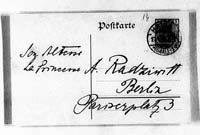 14
Postkarte
Son Altesse
La Princesse A. Radziwill
Berlin
Pariserplatz 3